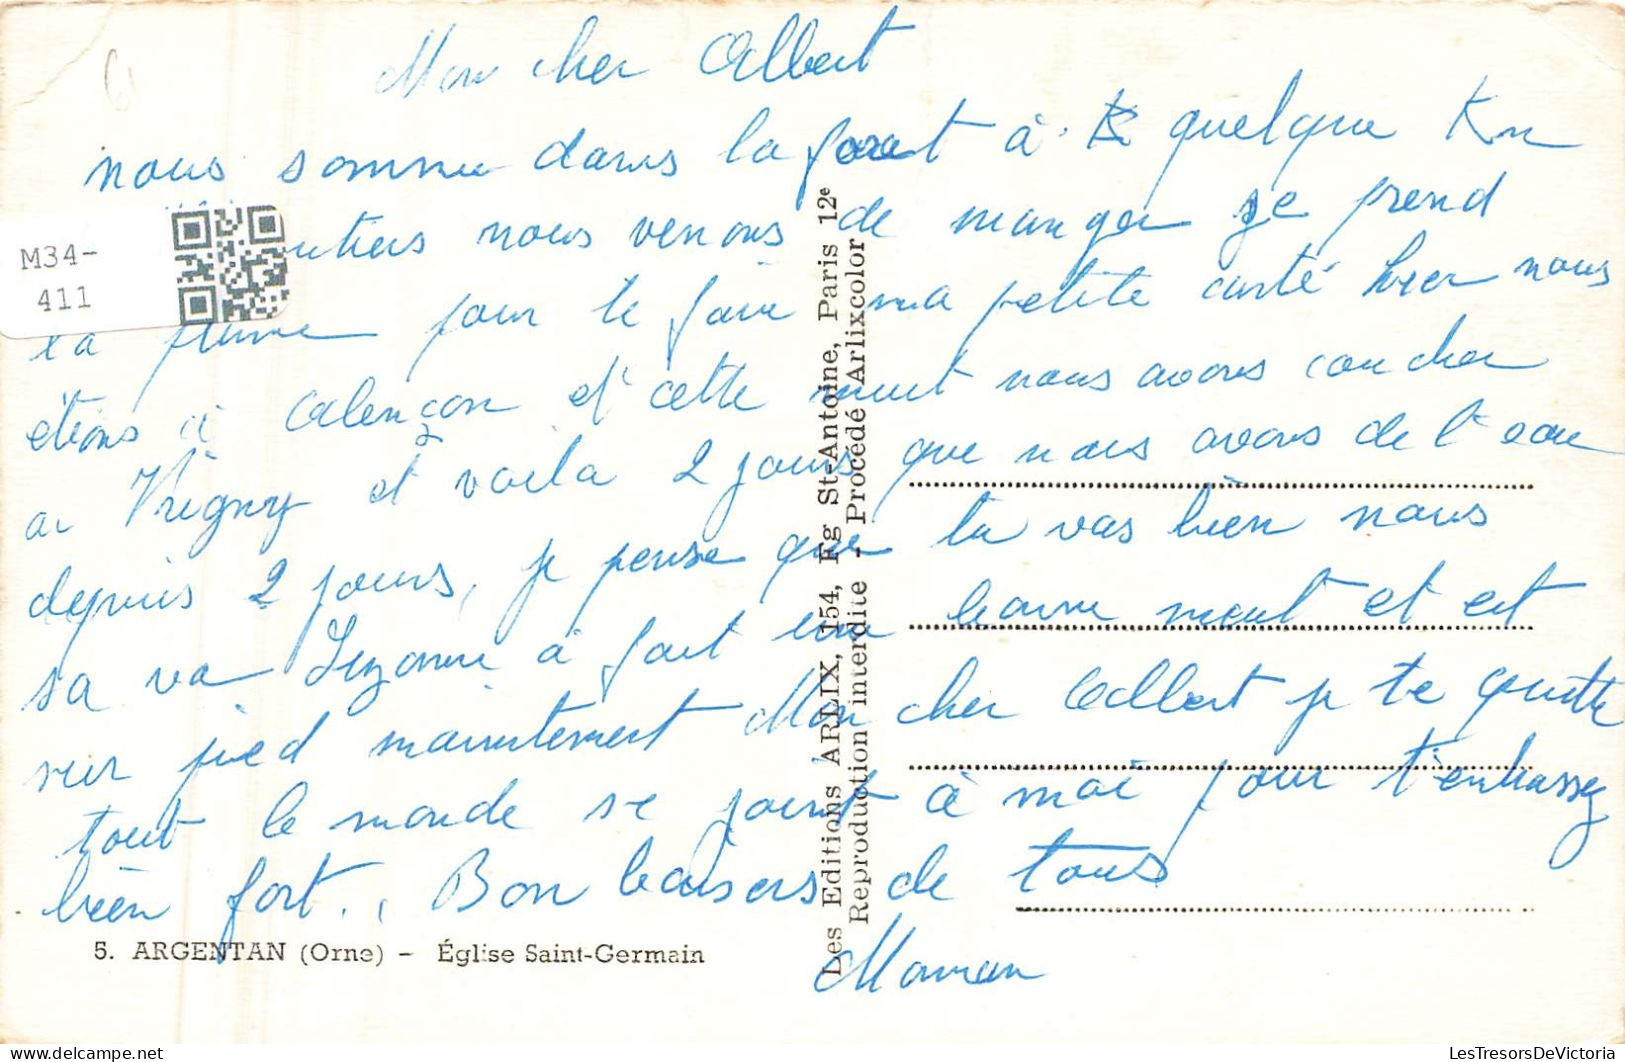 Mon cher Albert
nous somme dans la foret à quelque Km
nous venons de manger je prend
la plume pour te faire ma petite carte hier nous
étions à Alençon et cette nuit nous avons coucher
a Vrigny et voila 2 jours que nous avons de l'eau
depuis 2 jours, je pense que tu vas bien nous
sa va Suzanne à fait un et est
sur pied maintement Mon cher Albert je te quitte
tout le monde se joint à moi pour t'embrassez
bien fort., Bon baisers de tous
Maman
5. ARGENTAN (Orne) – Église Saint-Germain
Les Editions ARLIX, 154, Fg St-Antoine, Paris 12e
Reproduction interdite - Procédé Arlixcolor
M34-
411
LesTresorsDeVictoria
www.delcampe.net